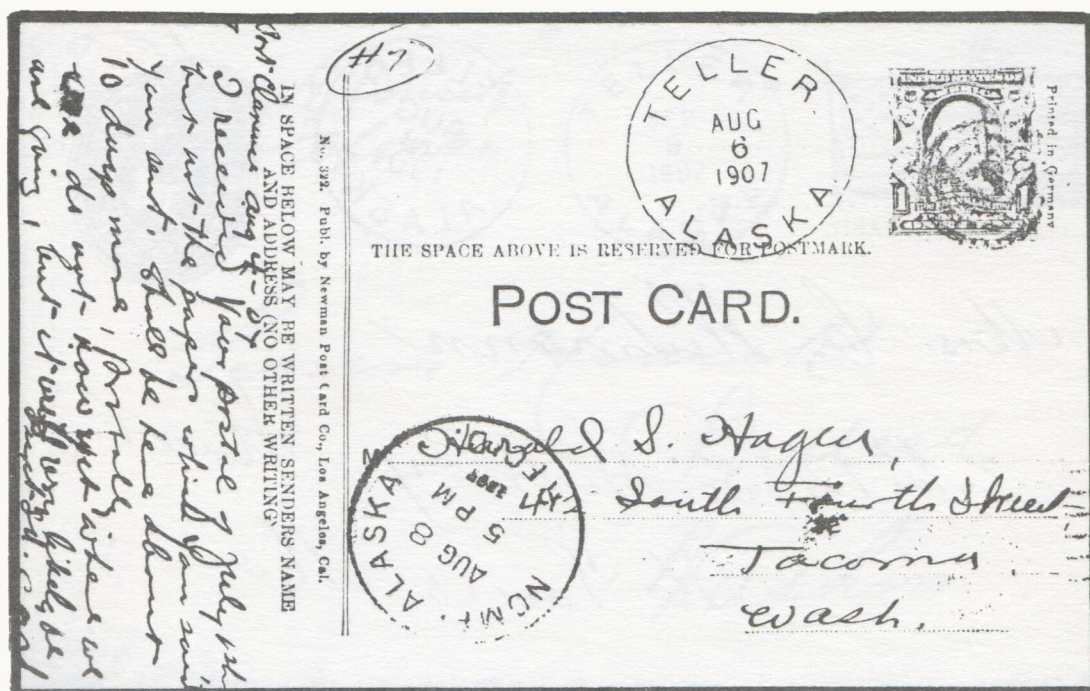 H7
TELLER
AUG
6
1907
ALASKA
Printed in Germany
THE SPACE ABOVE IS RESERVED FOR POSTMARK.
POST CARD.
Harald S. Hagen,
South Fourth Street
Tacoma,
Wash.
NOME, ALASKA
AUG 8
5 PM
1907
No. 332. Publ. by Newman Post Card Co., Los Angeles, Cal.
IN SPACE BELOW MAY BE WRITTEN SENDERS NAME
AND ADDRESS (NO OTHER WRITING)
Port Clarence Aug 4-07
I received your postal of July
but not the papers which you said
you sent. Shall be here about
10 days more, probably,
do not know yet where we
are going, but it will very likely be